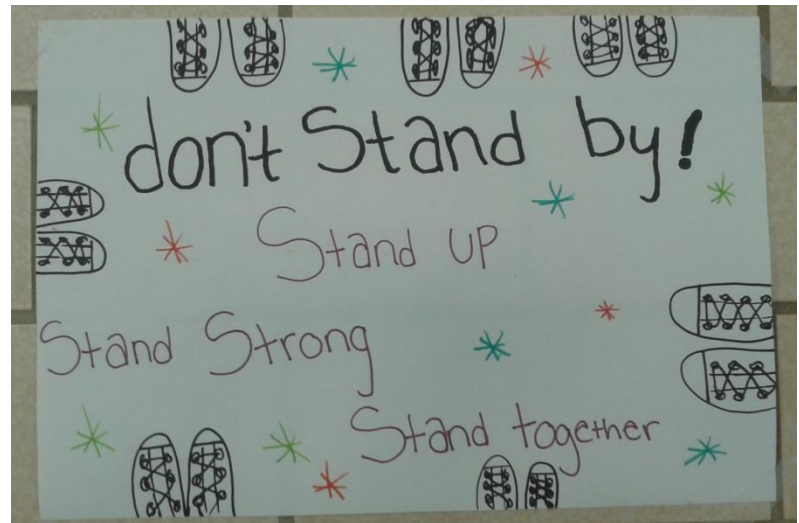 don't Stand by!
Stand UP
Stand Strong
Stand together